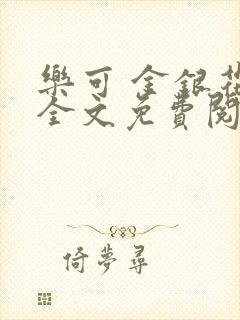 樂可 金銀花
全文免費閱
倚夢尋